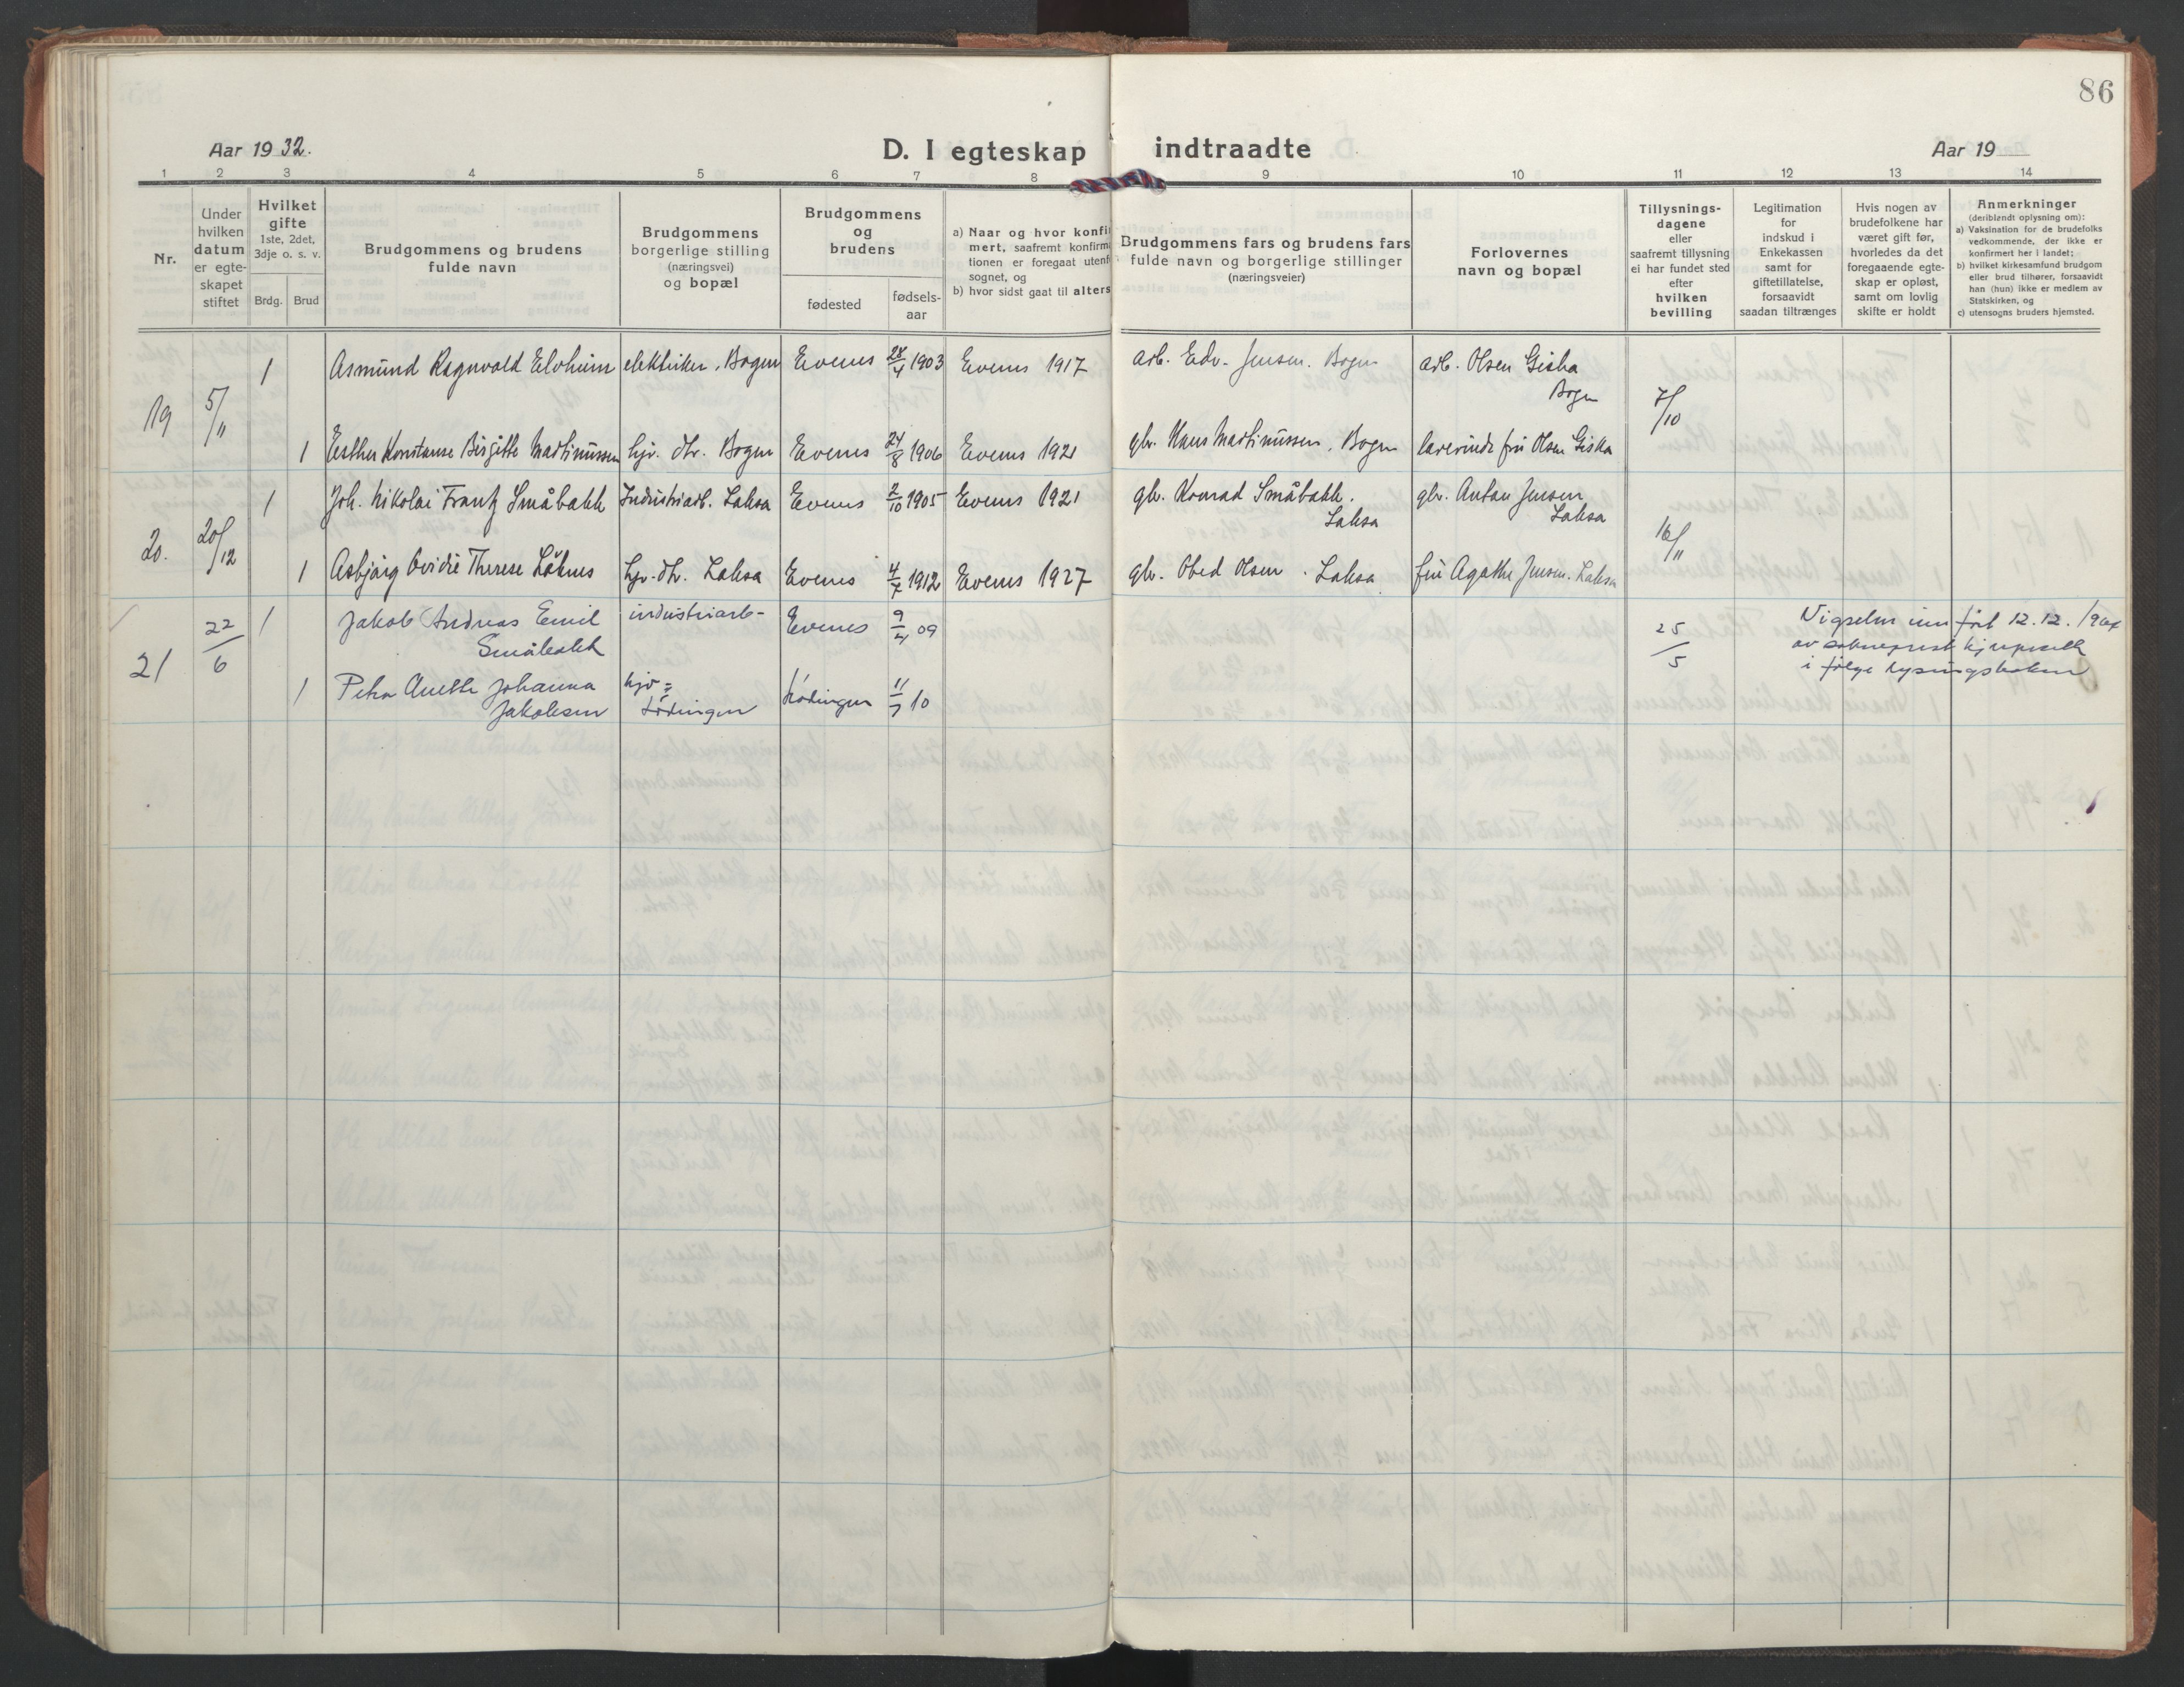 86
Aar 1932.
D. I egteskap indtraadte
Aar 19
1 2 3 4 5 6 7 8 9 10 11 12 13 14
Nr.
Under
hvilken
datum
er egte-
skapet
stiftet
Hvilket
gifte
1ste, 2det,
3dje o. s. v.
Brdg. Brud
Brudgommens og brudens
fulde navn
Brudgommens
borgerlige stilling
(næringsvei)
og bopæl
Brudgommens
og
brudens
fødested
fødsels-
aar
a) Naar og hvor konfir
mert, saafremt konfirma
tionen er foregaat utenf
sognet, og
b) hvor sidst gaat til alters
Brudgommens fars og brudens fars
fulde navn og borgerlige stillinger
(næringsveier)
Forlovernes
navn og bopæl
Tillysnings-
dagene
eller
saafremt tillysning
ei har fundet sted
efter
hvilken
bevilling
Legitimation
for
indskud i
Enkekassen
samt for
giftetillatelse,
forsaavidt
saadan tiltrænges
Hvis nogen av
brudefolkene har
været gift før,
hvorledes da det
foregaaende egte-
skap er opløst,
samt om lovlig
skifte er holdt
Anmerkninger
(deriblandt oplysning om):
a) Vaksination for de brudefolks
vedkommende, der ikke er
konfirmert her i landet;
b) hvilket kirkesamfund brudgom
eller brud tilhører, forsaavidt
han (hun) ikke er medlem av
Statskirken, og
c) utensogns bruders hjemsted.
19 5/11 1 Asmund Ragnvald Elvheim elektriker, Bogen Evenes 28/4 1903 Evenes 1917 arb. Edv. Jensen. Bogen arb. Olsen Giska
Bogen
7/10
1 Esther Konstanse Birgitte Martinussen hjv. dtr. Bogen Evenes 24/8 1906 Evenes 1921 gbr. Hans Martinussen, Bogen lærerinde fru Olsen Giska
20. 20/12 1 Joh. Nikolai Frantz Småbakk Industriarb. Laksa Evenes 2/10 1905 Evenes 1921 gbr. Konrad Småbakk.
Laksa
gbr. Anton Jensen
Laksa
16/11
1 Asbjørg Ovidie Therese Låknes hjv. dtr. Laksa Evenes 4/7 1912 Evenes 1927 gbr. Obed Olsen. Laksa fru Agathe Jensen. Laksa
21 22/6 1 Jakob Andreas Emil
Småbakk
industriarb- Evenes 9/4 09 25/5
Vigselen innført 12.12.
av sokneprest
i følge lysingsboken
1 Petra Anette Johanna
Jakobsen
hjv=
Lödingen
Lödingen 11/7 10